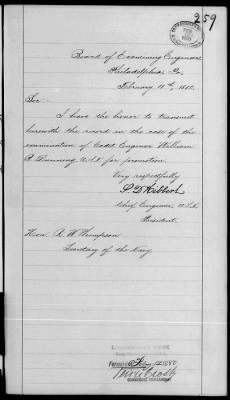 259
Board of Examining Engineers
Philadelphia Pa.
February 11th, 1880.
Sir:
I have the honor to transmit
herewith the record in the case of the
examination of Cadet Engineer William
for promotion.
Very respectfully
Chief Engineer, U.S.N.
President.
Hon. R. W. Thompson
Secretary of the Navy.